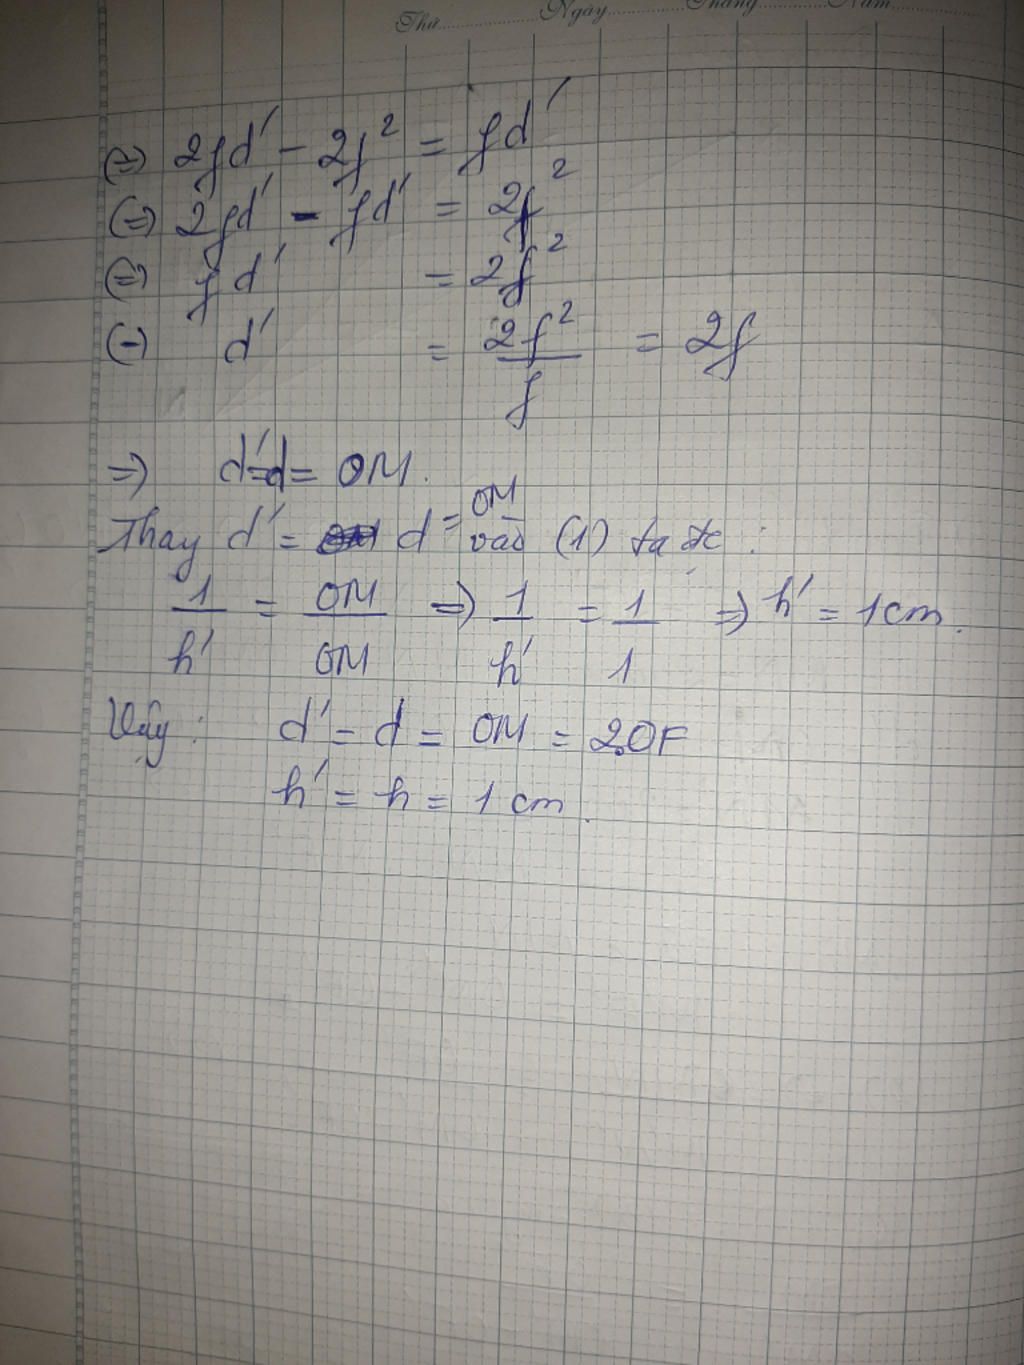 Thứ Ngày Tháng Năm
(=) 2fd' - 2f² = fd'
(=) 2fd' - fd' = 2f²
(=) fd' = 2f²
(=) d' = 2f²/f = 2f
=> d'=d= OM.
Thay d' = d = OM vào (1) ta đc :
1/h' = OM/OM => 1/h' = 1/1 => h' = 1cm.
Vậy : d' = d = OM = 2.OF
h' = h = 1 cm.